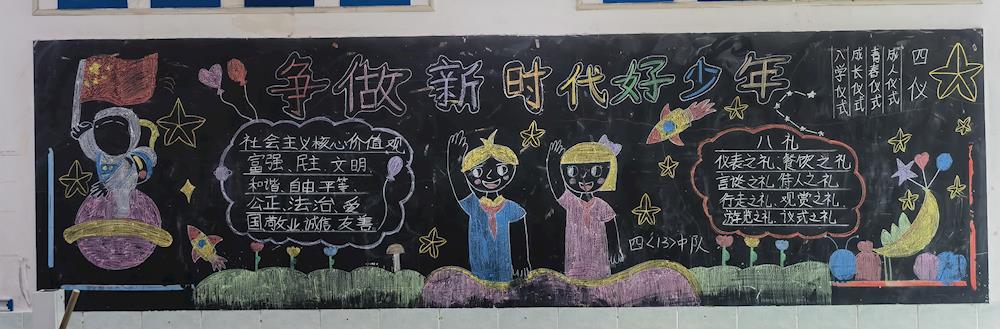 争做新时代好少年
社会主义核心价值观
富强、民主、文明、
和谐、自由、平等、
公正、法治、爱
国敬业诚信、友善
四<13>中队
八礼
仪表之礼、餐饮之礼
言谈之礼、待人之礼
行走之礼、观赏之礼
游览之礼、仪式之礼
四仪
成人仪式
青春仪式
成长仪式
入学仪式